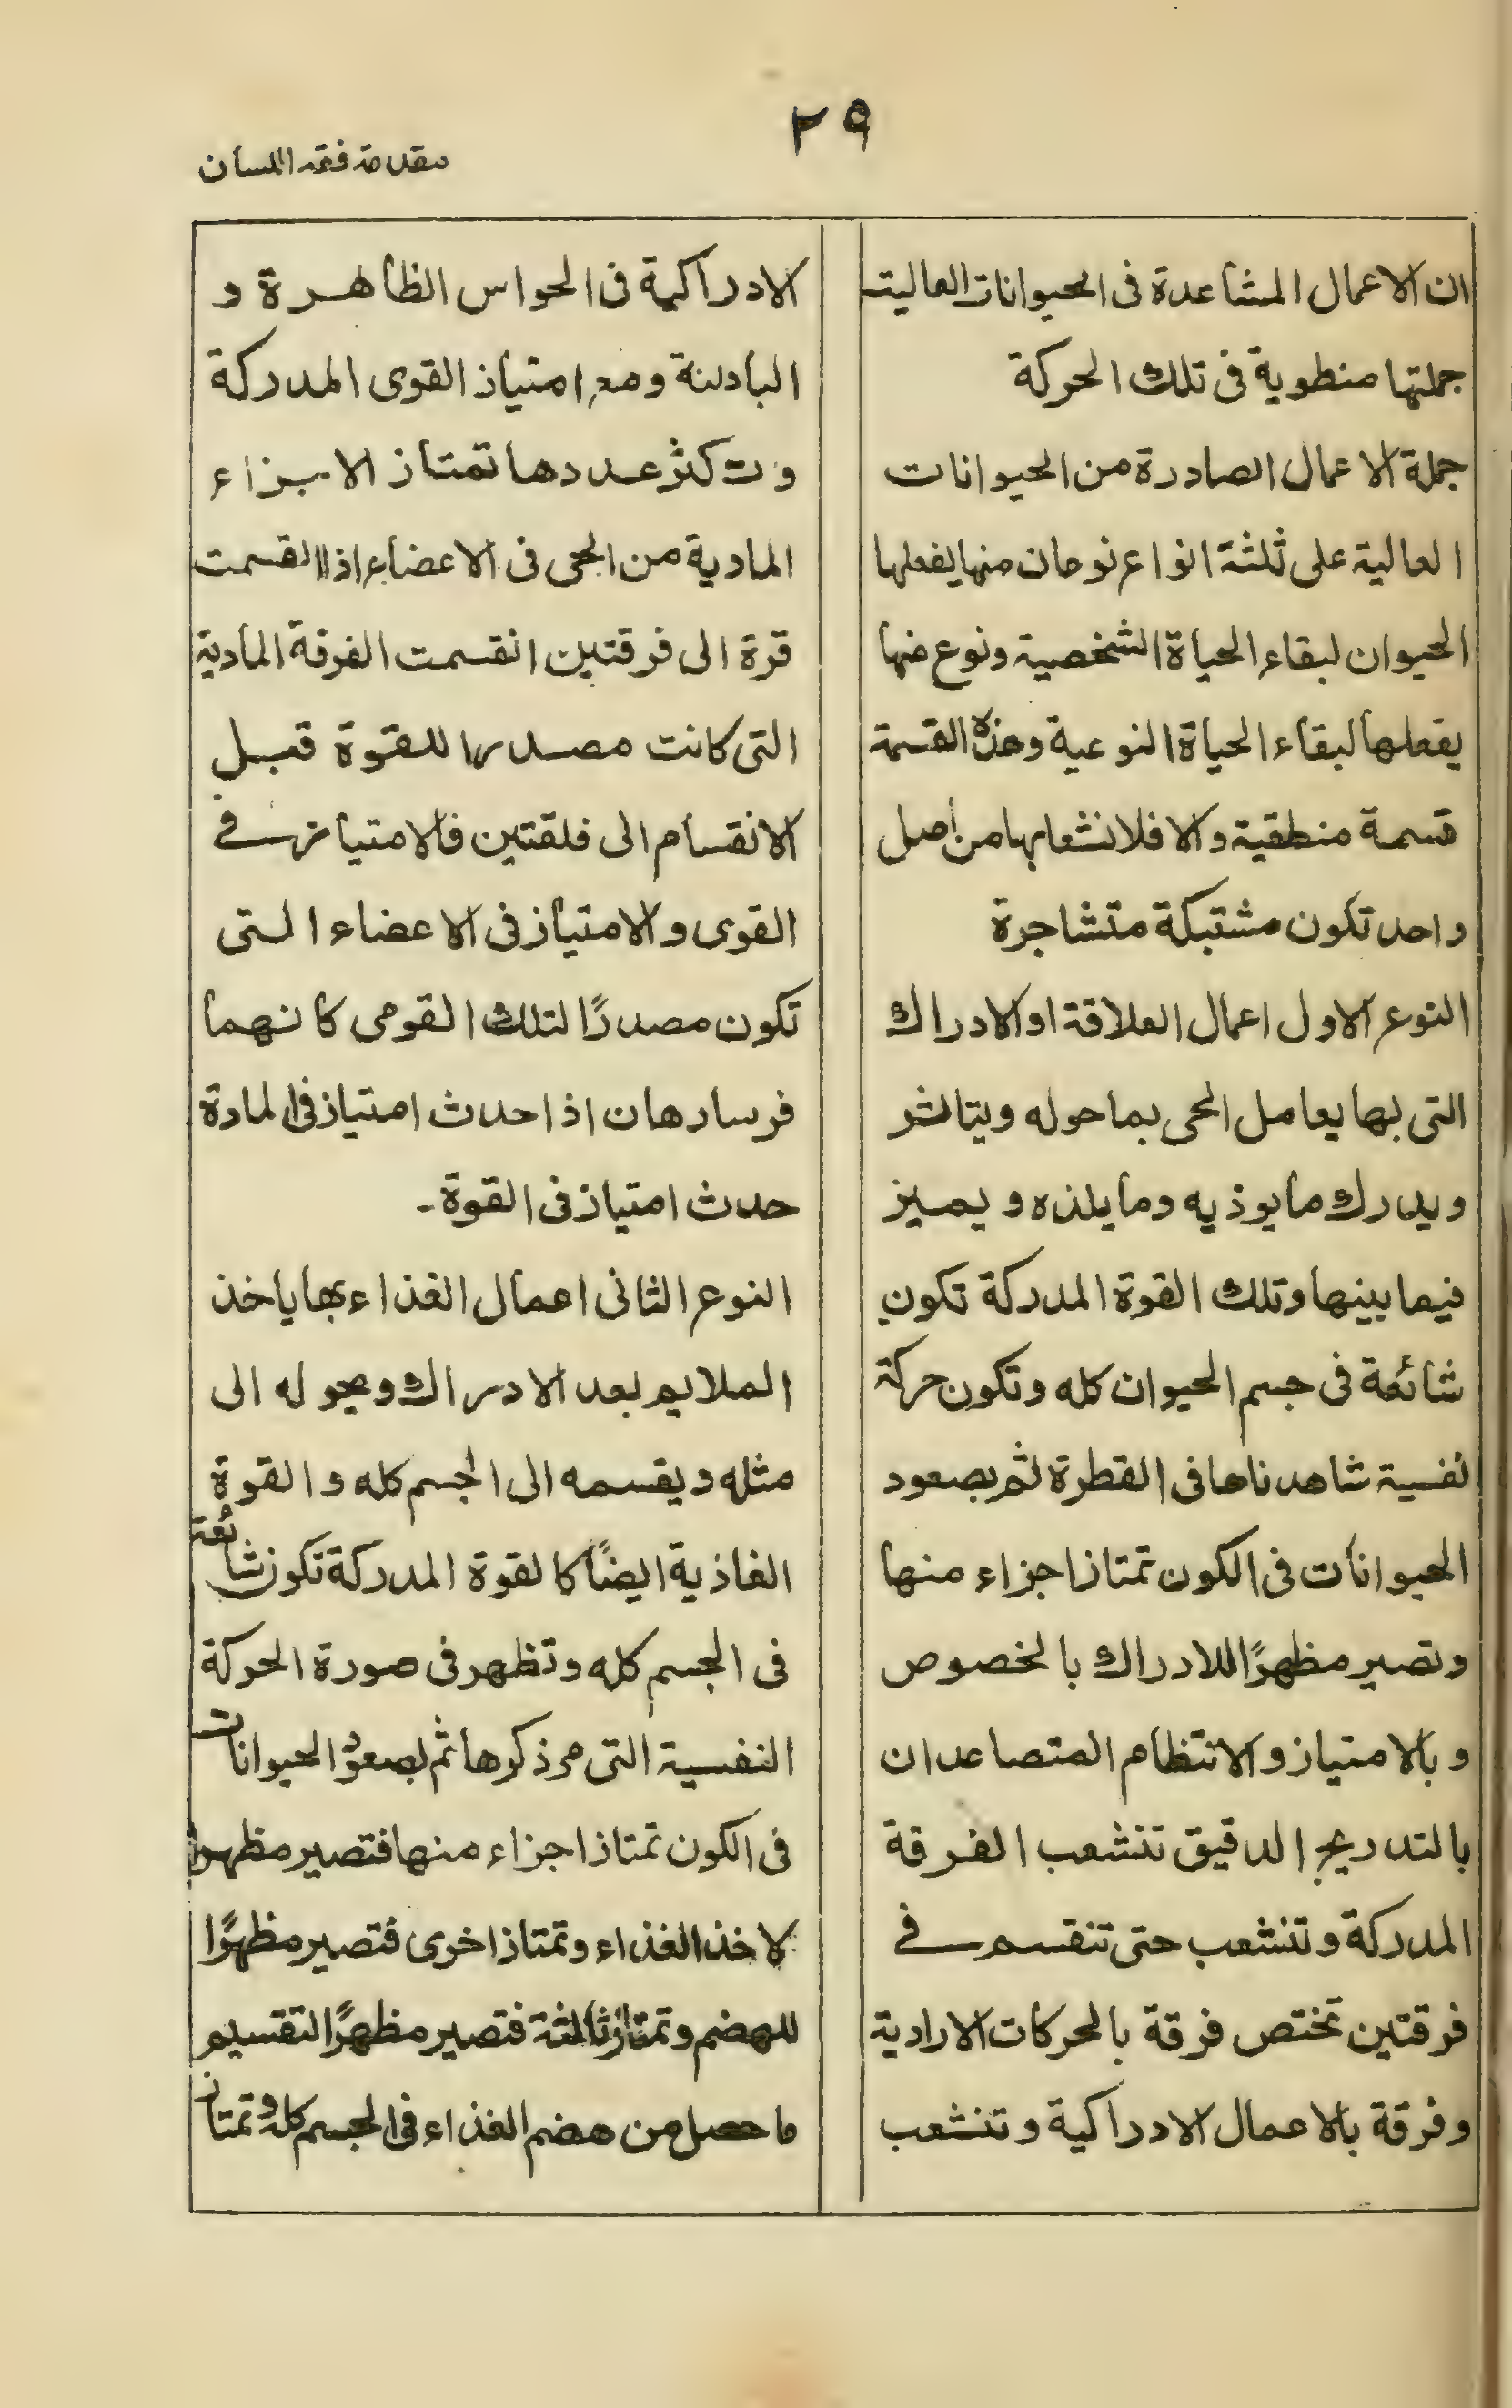 ٢٩
مقدمة فقه اللسان
ان الاعمال المشاعدة فى الحيوانات العالية
جملتها منطوية فى تلك الحركة
جملة الاعمال الصادرة من الحيوانات
العالية على ثلثة انواع نوعان منها يفعلها
الحيوان لبقاء الحياة الشخصية ونوع منها
يفعلها لبقاء الحياة النوعية وهذه القسمة
قسمة منطقية والا فلانشعابها من اصل
واحد تكون مشتبكة متشاجرة
النوع الاول اعمال العلاقة او الادراك
التى بها يعامل الحى بما حوله ويتاثر
ويدرك ما يوذيه وما يلذه و يميز
فيما بينها وتلك القوة المدركة تكون
شائعة فى جسم الحيوان كله وتكون حركة
نفسية شاهدناها فى القطرة ثم بصعود
الحيوانات فى الكون تمتاز اجزاء منها
وتصير مظهرًا للادراك بالخصوص
وبالامتياز والانتظام المتصاعدان
بالتدريج الدقيق تنشعب الفرقة
المدركة وتنشعب حتى تنقسم فے
فرقتين تختص فرقة بالحركات الارادية
وفرقة بالاعمال الادراكية وتنشعب
الادراكية فى الحواس الظاهرة و
الباطنة ومع امتياز القوى المدركة
وتكثر عددها تمتاز الاجزاء
المادية من الحى فى الاعضاء اذا انقسمت
قرة الى فرقتين انقسمت الفرقة المادية
التى كانت مصدرا للقوة قبل
الانقسام الى فلقتين فالامتياز فے
القوى والامتياز فى الاعضاء التى
تكون مصدرًا لتلك القوى كانهما
فرسا رهان اذا حدث امتياز فى المادة
حدث امتياز فى القوة۔
النوع الثانى اعمال الغذاء بها ياخذ
الملايم بعد الادراك ويحوله الى
مثله ويقسمه الى الجسم كله والقوة
الغاذية ايضًا كالقوة المدركة تكون شائعة
فى الجسم كله وتظهر فى صورة الحركة
النفسية التى مر ذكرها ثم لصعود الحيوانات
فى الكون تمتاز اجزاء منها فتصير مظهرا
لاخذ الغذاء وتمتاز اخرى فتصير مظهرًا
للهضم وتمتاز ثالثة فتصير مظهرًا لتقسيم
ما حصل من هضم الغذاء فى الجسم كله وتمتاز